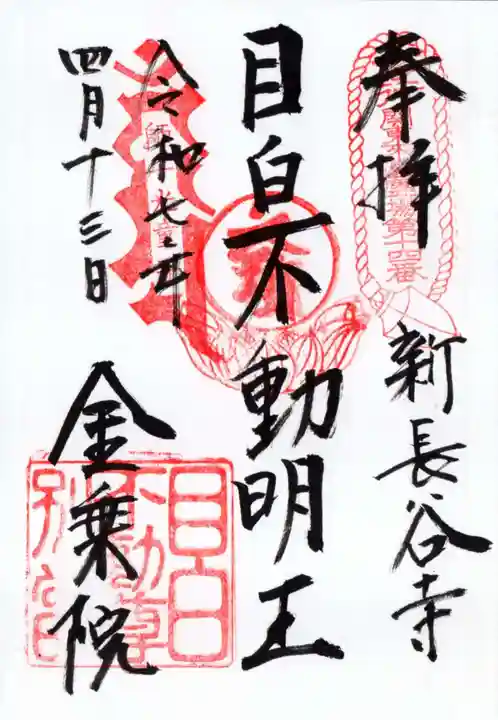 奉拝
新長谷寺
目白不動明王
令和七年
四月十三日
金乗院
第十四番